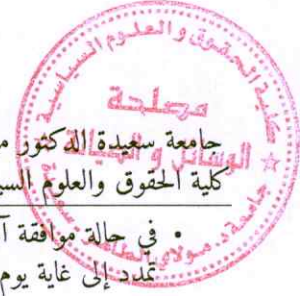 كلية الحقوق والعلوم السياسية
مصلحة
الوسائل و الصيانة
جامعة د. مولاي الطاهر سعيدة
جامعة سعيدة الدكتور م
كلية الحقوق والعلوم السيا
• في حالة موافقة آ
تمدد إلى غاية يوم